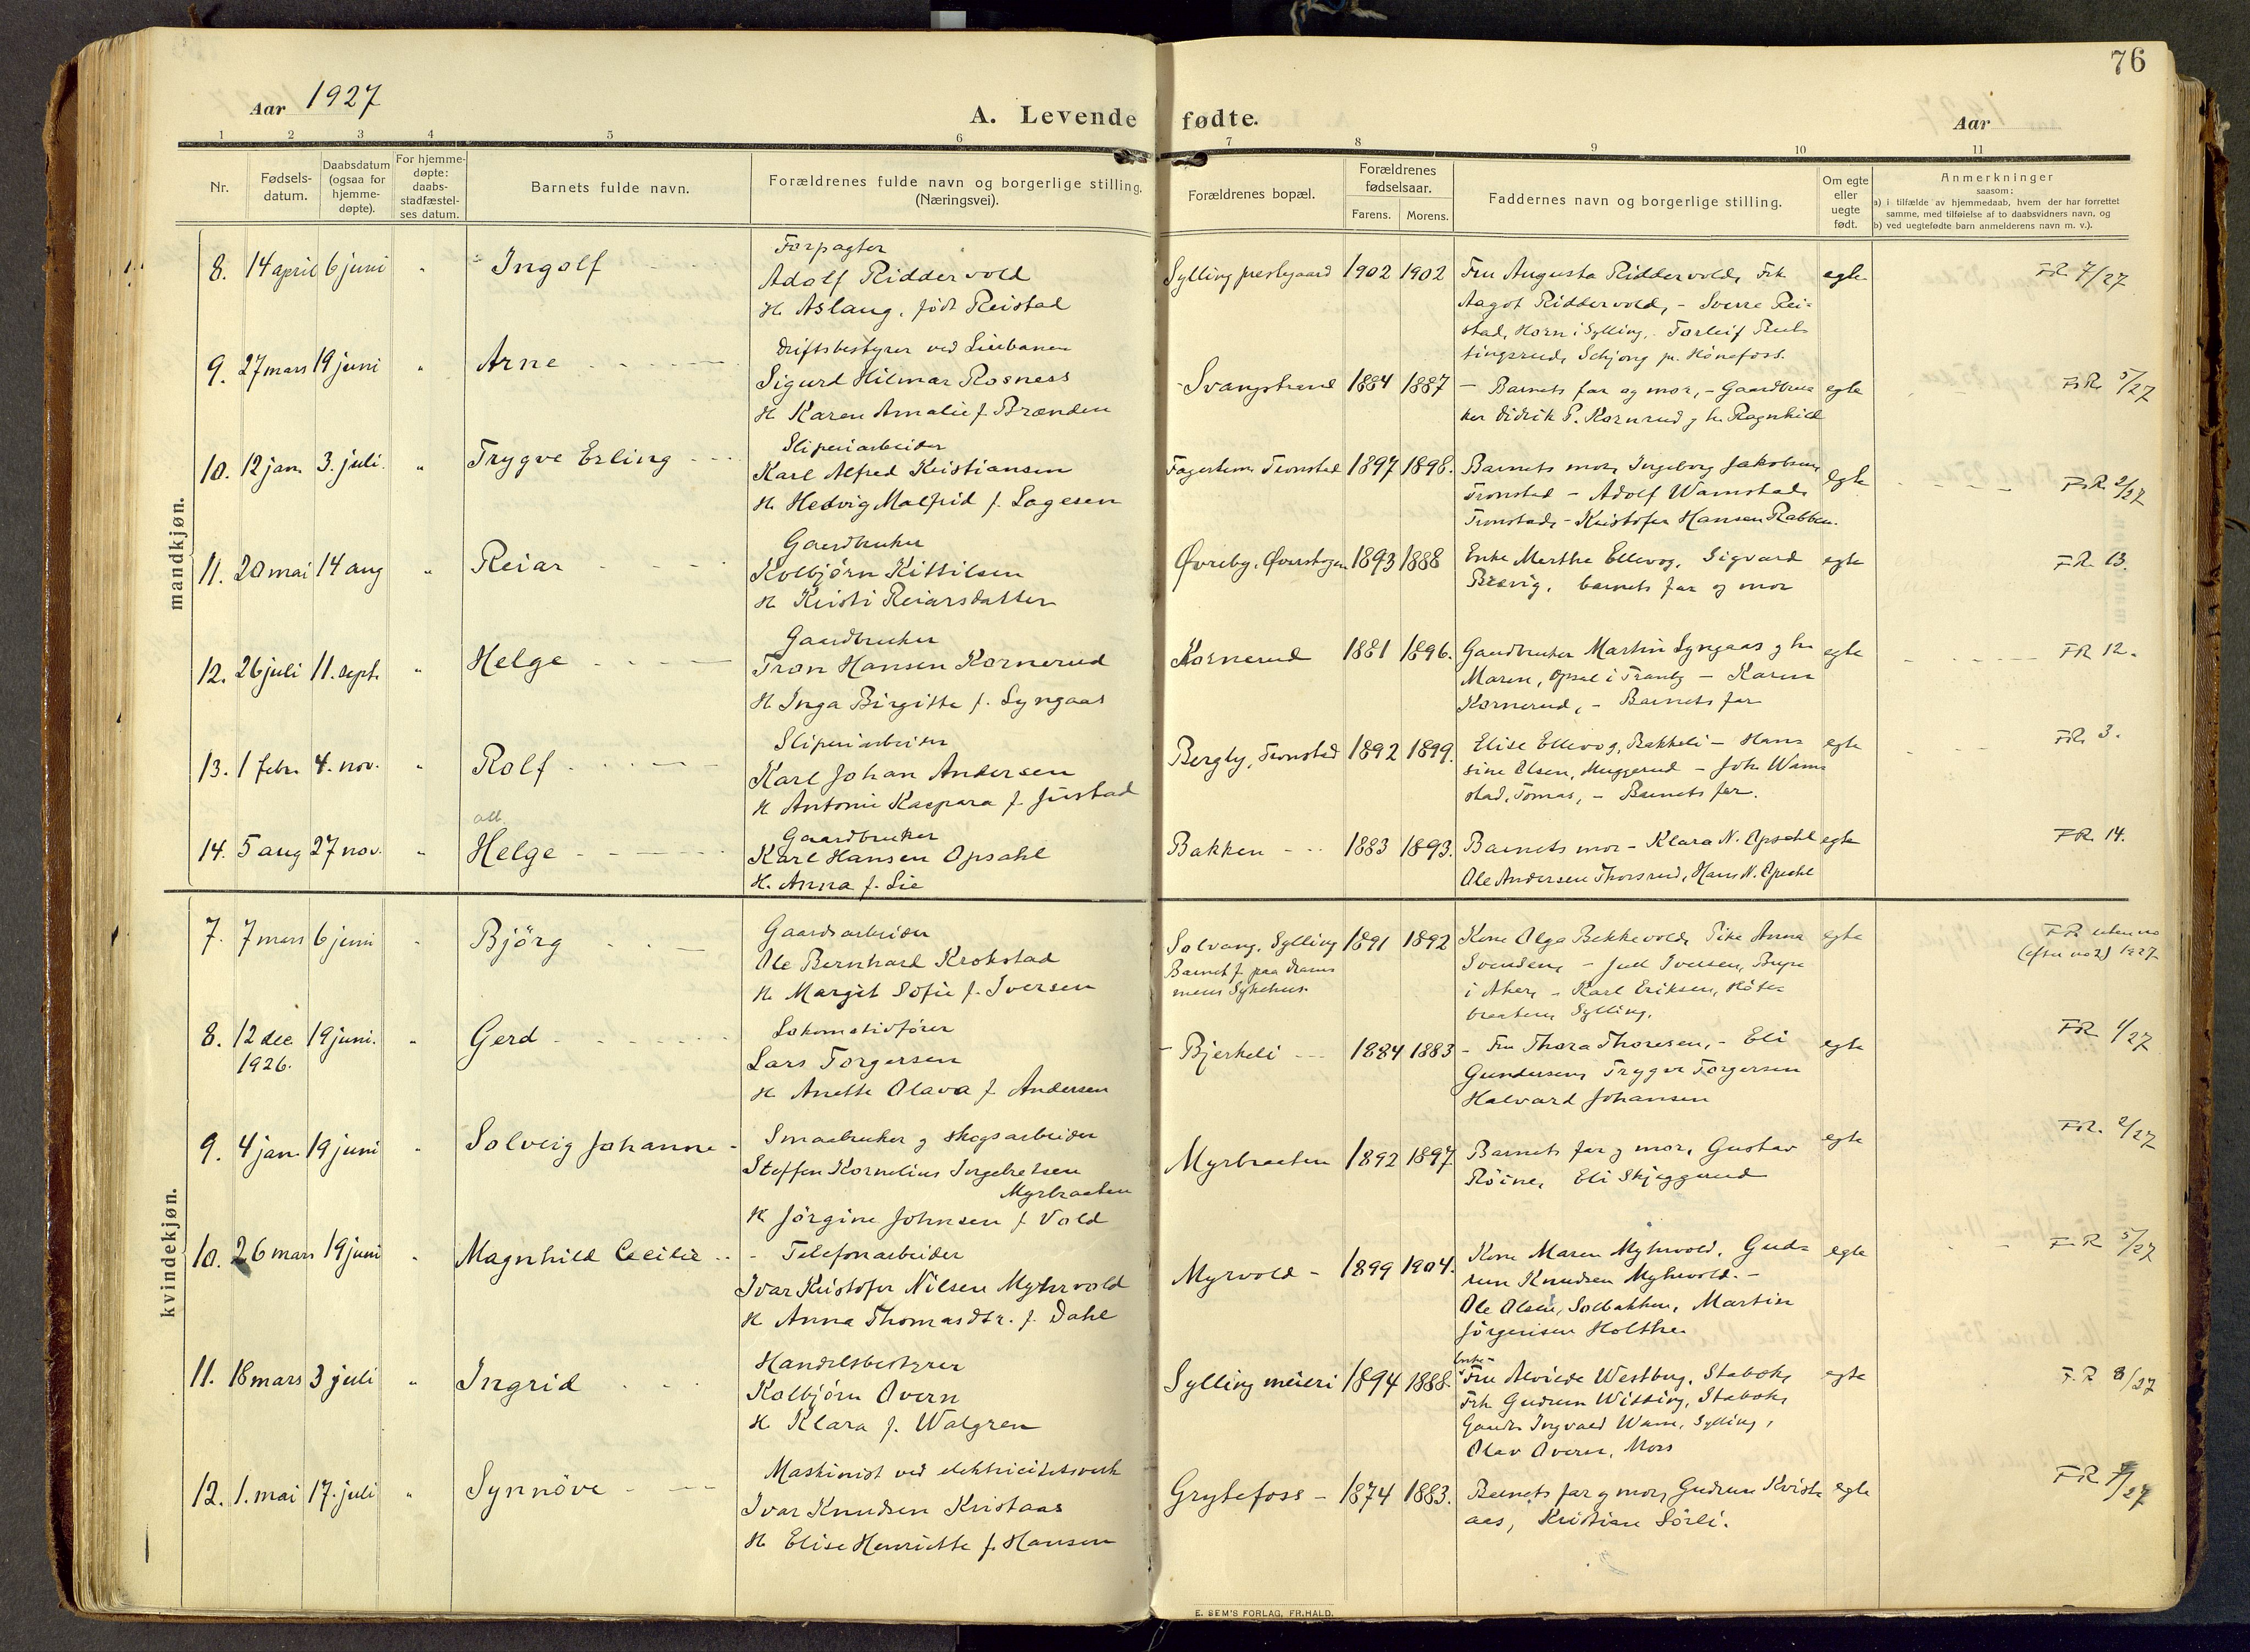 76
Aar 1927
A. Levende fødte.
Aar
1 2 3 4 5 6 7 8 9 10 11
Nr.
Fødsels-
datum.
Daabsdatum
(ogsaa for
hjemme-
døpte).
For hjemme-
døpte:
daabs-
stadfæstel-
ses datum.
Barnets fulde navn.
Forældrenes fulde navn og borgerlige stilling.
(Næringsvei).
Forældrenes bopæl.
Forældrenes
fødselsaar.
Farens. Morens.
Faddernes navn og borgerlige stilling.
Om egte
eller
uegte
født.
Anmerkninger
saasom:
a) i tilfælde av hjemmedaab, hvem der har forrettet
samme, med tilføielse af to daabsvidners navn, og
b) ved uegtefødte barn anmelderens navn m. v.).
mandkjøn.
8. 14 april 6 juni " Ingolf
Forpagter
Adolf Riddervold
H. Aslaug, født Reistad
Sylling prestegaard 1902 1902
Fru Augusta Riddervold, Frk.
Aagot Riddervold, - Sverre Rei-
stad, Horn i Sylling, Torleif
Schjong pr. Hönefoss.
egte
FR. 7/27
9. 27 mars 19 juni " Arne
Driftsbestyrer ved Lierbanen
Sigurd Hilmar Rosness
H. Karen Amalie f. Brænden
Svangstrand 1884 1887
- Barnets far og mor, - Gaardbru-
ker Didrik P. Kornrud og h. Ragnhild
egte
F.R. 5/27
10. 12 jan. 3. juli. " Trygve Erling
Sliperiarbeider
Karl Alfred Kristiansen
H. Hedvig Malfrid f. Lagesen
Fagerheim Tronstad 1897 1898.
Barnets mor, Ingeborg Jakobsen,
Tronstad - Adolf Wamstad,
Tronstad, - Kristofer Hansen Rabben.
egte
F.R. 2/27
11. 20 mai 14 aug " Reiar
Gaardbruker
Kolbjørn Kittilsen
H. Kristi Reiarsdatter
Øvreby, Øverskogen 1893 1888
Enke Marthe Ellevog, Sigvard
Brævig, barnets far og mor
egte
F.R. 13.
12. 26 juli 11. sept. " Helge
Gaardbruker
Tron Hansen Kornerud
H. Inga Birgitte f. Lyngaas
Kornerud 1881 1896.
Gaardbruker Martin Lyngaas og h.
Maren, Opsal i Tranby - Karen
Kornerud, - Barnets far
egte
FR 12.
13. 1 febr. 4. nov. " Rolf
Sliperiarbeider
Karl Johan Andersen
H. Antonie Kaspara f. Justad
Bergly, Tronstad 1892 1899.
Elise Ellevog, Bakkeli - Han-
sine Olsen, Muggerud - Joh. Wam-
stad, Tomas, - Barnets far.
egte
FR. 3.
14. 5 aug 27 nov. " Helge
Gaardbruker
Karl Hansen Opsahl
H. Anna f. Lie
Bakken 1883 1893.
Barnets mor - Klara N. Opsahl
Ole Andersen Thorsrud, Hans N. Opsahl
egte
FR. 14.
kvindekjøn.
7. 7 mars 6 juni " Björg
Gaardsarbeider
Ole Bernhard Krokstad
H. Margit Sofie f. Iversen
Solvang, Sylling
Barnet f. paa Dram-
mens Sykehus.
1891 1892
Kone Olga Bekkevold, Pike Anna
Svendsen, - Juel Iversen, Bryn
i Aker, - Karl Eriksen,
Sylling.
egte
FR uten no
(efter no 2) 1927
8. 12 dec. 1926. 19 juni. " Gerd
Lokomotivfører
Lars Torgersen
H. Anette Olava f. Andersen
Bjerkeli 1884 1883
- Fru Thora Thoresen, - Eli
Gundersen, Trygve Torgersen
Halvard Johansen
egte
FR 1/27
9. 4 jan 19 juni " Solveig Johanne
Smaabruker og skogsarbeider
Steffen Kornelius Ingebretsen
Myrbraaten
H. Jörgine Johnsen f. Vold
Myrbraaten 1892 1897
Barnets far og mor, Gustav
Röine, Eli Skjeggerud
egte
FR. 2/27
10. 26 mars 19 juni " Magnhild Cecilie
Telefonarbeider
Ivar Kristofer Nilsen Myhrvold
H. Anna Thomasdtr. f. Dahl
Myrvold 1899 1904.
Kone Maren Myhrvold, Gud-
run Knudsen Myhrvold. -
Ole Olsen, Solbakken, Martin
Jörgensen Holthe
egte
F.R 5/27
11. 18 mars 3 juli " Ingrid
Handelsbestyrer
Kolbjörn Overn
H. Klara f. Walgren
Sylling meieri 1894 1888.
Enke-
Fru Alvilde Westby, Stabæk,
Frk. Gudrun Wissing, Stabæk,
Gaardb. Ingvald Wam, Sylling,
Olav Overn, Moss
egte
F.R 8/27
12. 1. mai 17. juli " Synnöve
Maskinist ved elektricitetsverk
Ivar Knudsen Kvistaas
H. Elise Henriette f. Hansen
Grytefoss 1874 1883.
Barnets far og mor, Gudrun Kvist-
aas, Kristian Sörli.
egte
FR /27
E. SEM'S FORLAG, FR.HALD.